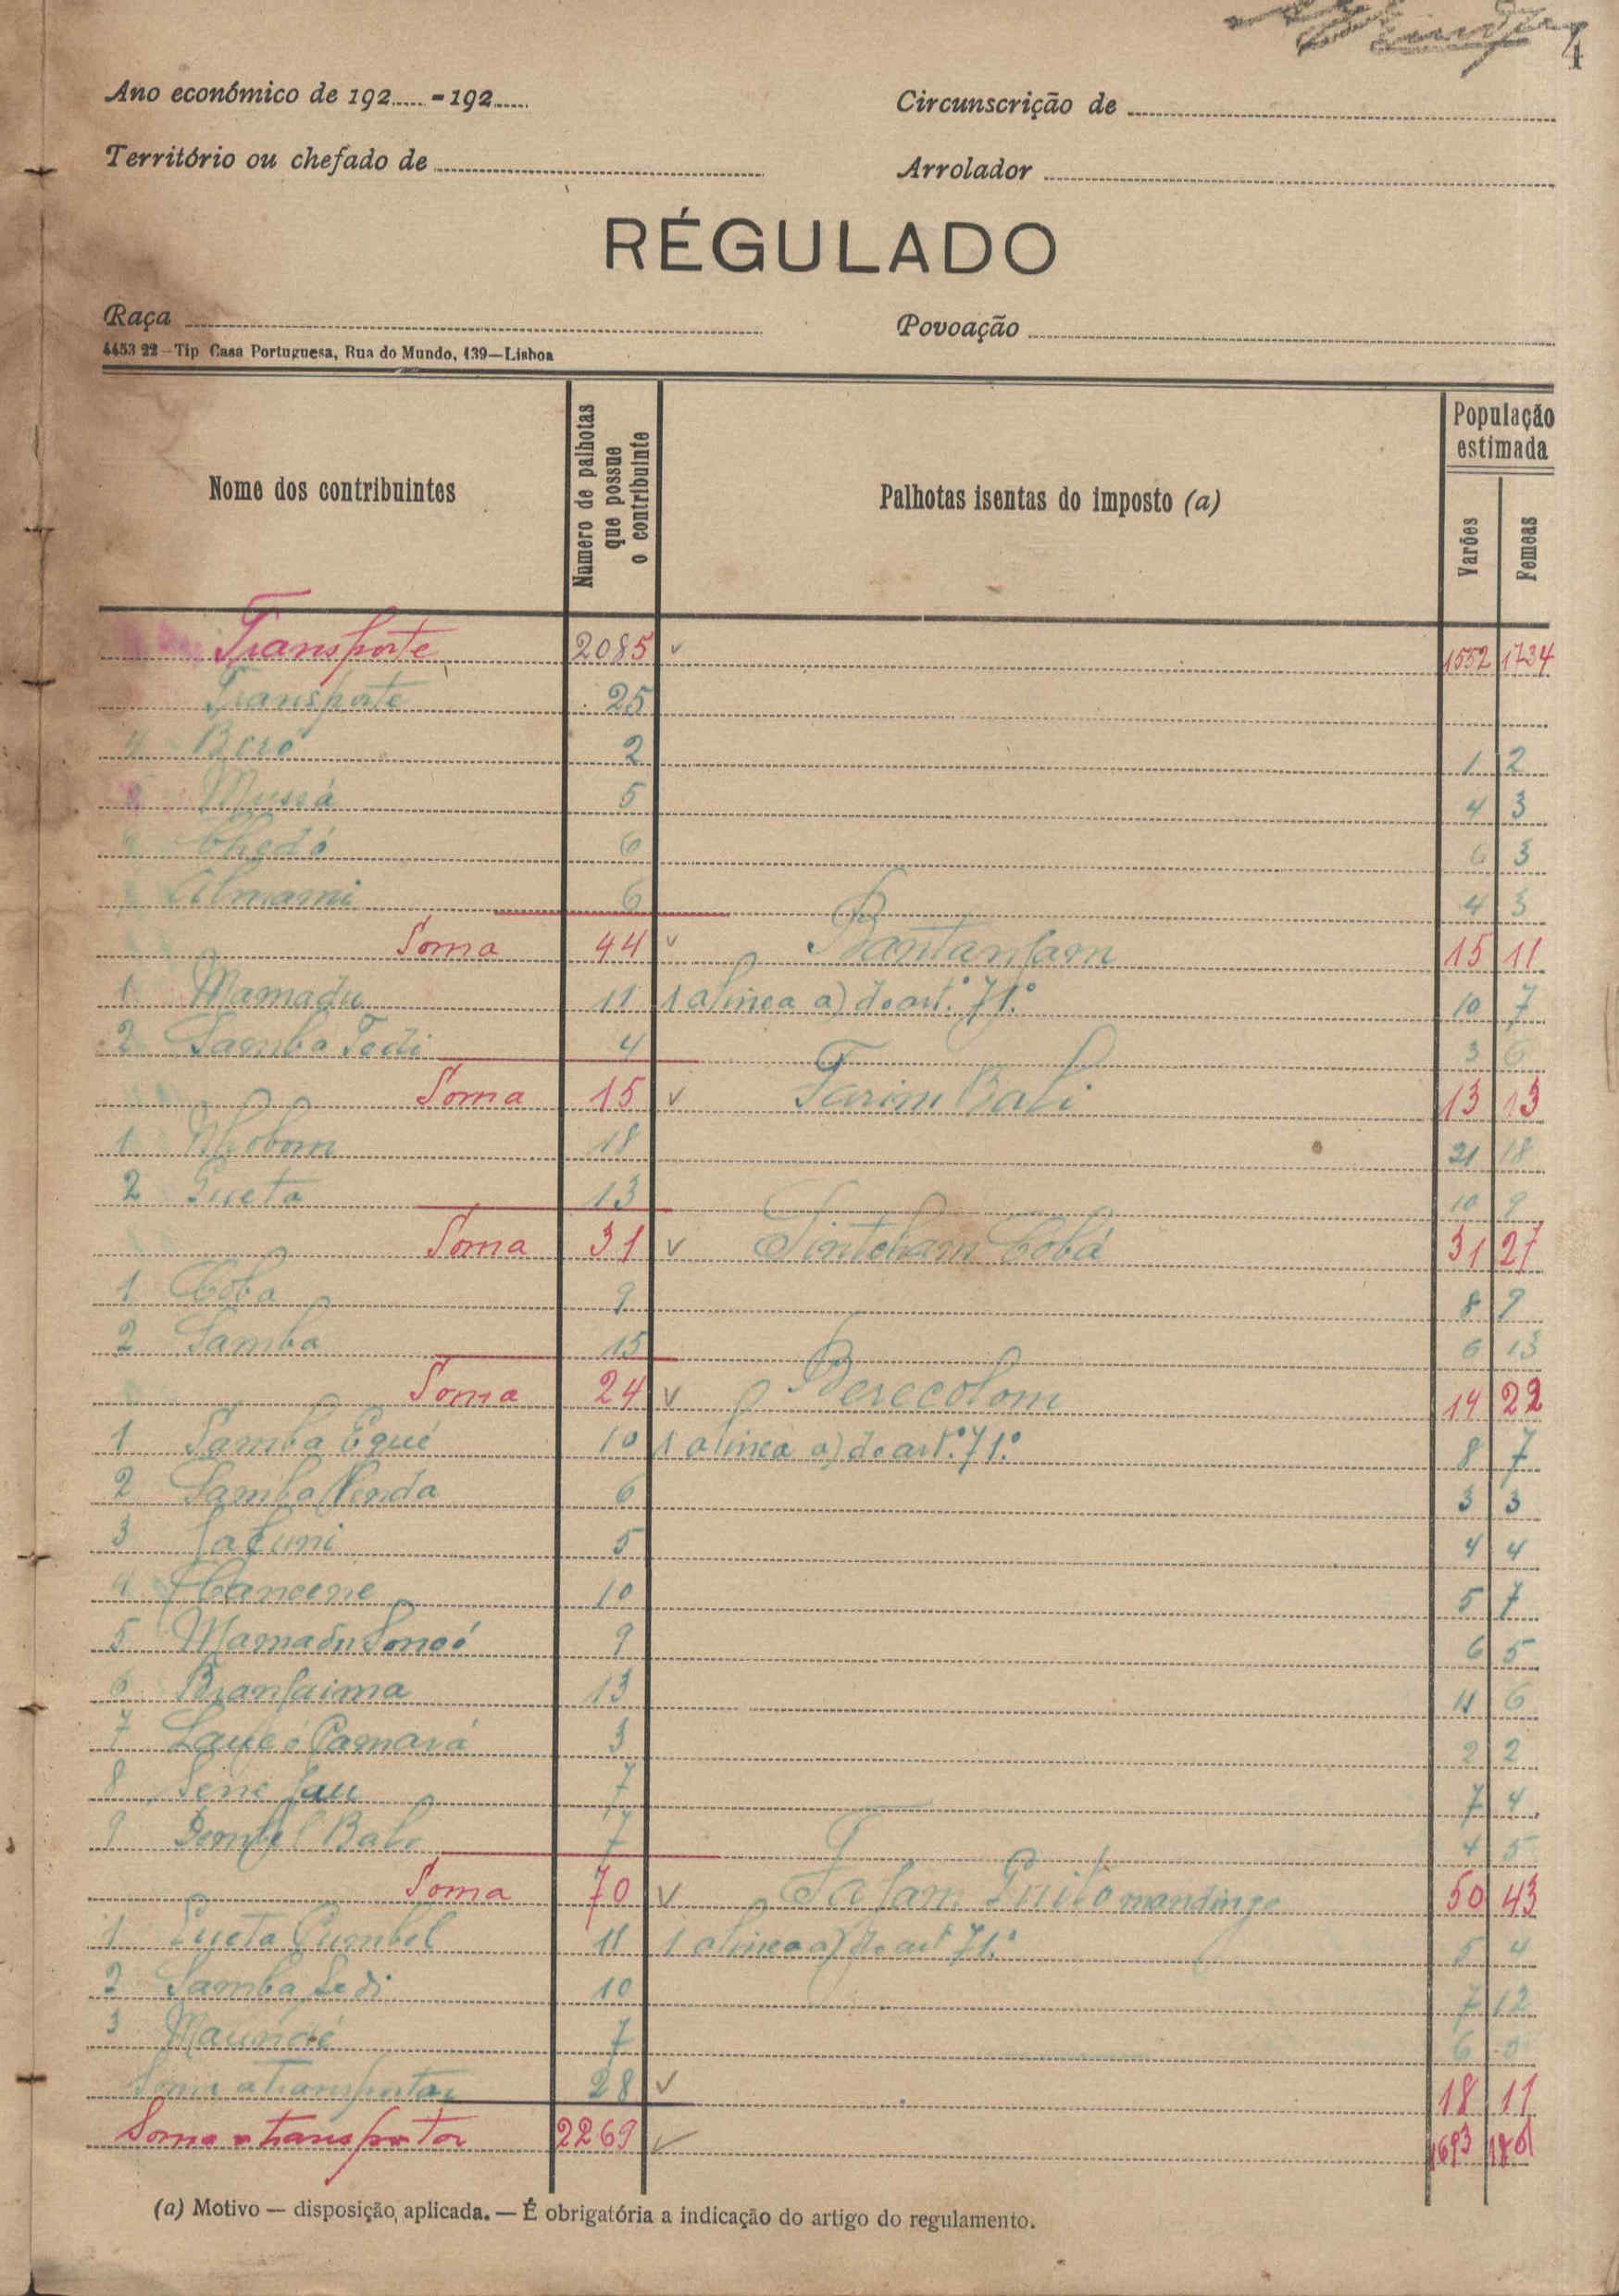 4
Ano económico de 192..... - 192.....
Circunscrição de
Território ou chefado de
Arrolador
RÉGULADO
Raça
Povoação
4453 22—Tip Casa Portuguesa, Rua do Mundo, 139—Lisboa
Nome dos contribuintes
Número de palhotas que possue o contribuinte
Palhotas isentas do imposto (a)
População estimada
Varões
Femeas
Transporte 2085 1552 1734
Transporte 25
4 Beró 2 1 2
Mussá 5 4 3
Chedó 6 6 3
Almami 6 4 3
Soma 44 Bantanjam 15 11
1 Mamadu 11 1 alinea a) do art.º 71.º 10 7
2 Samba Tedi 4 3 6
Soma 15 Tarim Bali 13 13
1 18 21 18
2 Gueta 13 10 9
Soma 31 Sintcham Cobá 31 27
1 Coba 9 8 9
2 Samba 15 6 13
Soma 24 Berecolom 14 22
1 Samba Egué 10 1 alinea a) do art.º 71.º 8 7
2 Samba Penda 6 3 3
3 5 4 4
4 10 5 7
5 Mamadu Soncó 9 6 5
6 Branjaima 13 11 6
7 Camará 3 2 2
8 Sene Jau 7 7 4
9 Dembel Balo 7 4 5
Soma 70 mandinga 50 43
1 Gueta Cumbel 11 1 alinea a) do art 71.º 5 4
2 Samba 10 7 12
3 Maundé 7 6 0
Soma a transportar 28 18 11
Soma a transportar 2269 1693 1861
(a) Motivo — disposição aplicada. — É obrigatória a indicação do artigo do regulamento.